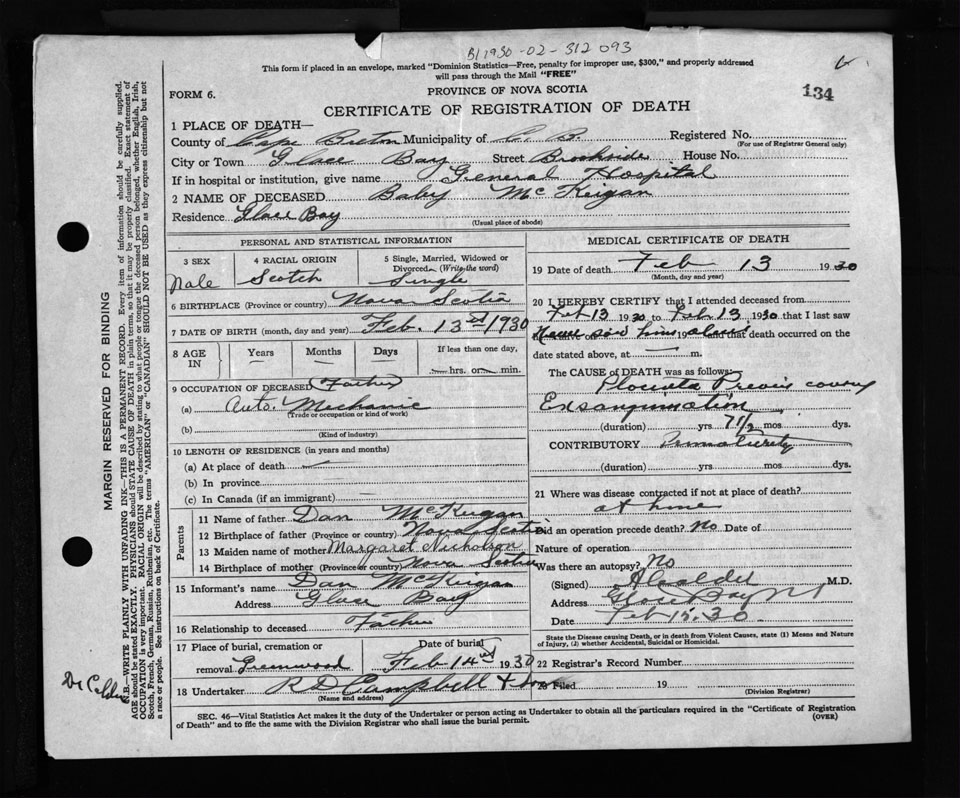 B 1930-02-312 093
6
This form if placed in an envelope, marked "Dominion Statistics—Free, penalty for improper use, $300," and properly addressed
will pass through the Mail "FREE"
134
FORM 6.
PROVINCE OF NOVA SCOTIA
CERTIFICATE OF REGISTRATION OF DEATH
1 PLACE OF DEATH—
County of Cape Breton Municipality of C. B. Registered No.
(For use of Registrar General only)
City or Town Glace Bay Street Brookside House No.
If in hospital or institution, give name General Hospital
2 NAME OF DECEASED Baby McKeigan
Residence Glace Bay
(Usual place of abode)
PERSONAL AND STATISTICAL INFORMATION
3 SEX Male
4 RACIAL ORIGIN Scotch
5 Single, Married, Widowed or
Divorced (Write the word)
Single
6 BIRTHPLACE (Province or country) Nova Scotia
7 DATE OF BIRTH (month, day and year) Feb. 13 1930
8 AGE IN Years Months Days If less than one day,
hrs. or min.
9 OCCUPATION OF DECEASED Father
(a) Auto. Mechanic
(Trade or occupation or kind of work)
(b)
(Kind of industry)
10 LENGTH OF RESIDENCE (in years and months)
(a) At place of death —
(b) In province —
(c) In Canada (if an immigrant) —
Parents
11 Name of father Dan McKeigan
12 Birthplace of father (Province or country) Nova Scotia
13 Maiden name of mother Margaret Nicholson
14 Birthplace of mother (Province or country) Nova Scotia
15 Informant's name Dan McKeigan
Address Glace Bay
16 Relationship to deceased Father
17 Place of burial, cremation or Date of burial
removal Greenwood Feb 14 1930
18 Undertaker R D Campbell & Son
(Name and address)
MEDICAL CERTIFICATE OF DEATH
19 Date of death Feb 13 1930
(Month, day and year)
20 I HEREBY CERTIFY that I attended deceased from
Feb 13 1930 to Feb 13 1930 that I last saw
saw him 19 and that death occurred on the
date stated above, at — m.
The CAUSE of DEATH was as follows:
Placenta Previa
(duration) yrs 7 1/2 mos dys.
CONTRIBUTORY
(duration) yrs. mos. dys.
21 Where was disease contracted if not at place of death?
at home
Did an operation precede death? No Date of
Nature of operation
Was there an autopsy? No
(Signed) M.D.
Address Glace Bay
Date Feb 30
State the Disease causing Death, or in death from Violent Causes, state (1) Means and Nature
of Injury, (2) whether Accidental, Suicidal or Homicidal.
22 Registrar's Record Number
23 Filed 19
(Division Registrar)
SEC. 46—Vital Statistics Act makes it the duty of the Undertaker or person acting as Undertaker to obtain all the particulars required in the "Certificate of Registration
of Death" and to file the same with the Division Registrar who shall issue the burial permit.
(OVER)
MARGIN RESERVED FOR BINDING
N.B.—WRITE PLAINLY WITH UNFADING INK—THIS IS A PERMANENT RECORD. Every item of information should be carefully supplied.
AGE should be stated EXACTLY. PHYSICIANS should STATE CAUSE OF DEATH in plain terms, so that it may be properly classified. Exact statement of
OCCUPATION is very important. RACIAL ORIGIN will be described by stating to what people or tongue the deceased person belonged, whether English, Irish,
Scotch, French, German, Russian, Ruthenian, etc. The terms "AMERICAN" or "CANADIAN" SHOULD NOT BE USED as they express citizenship but not
a race or people. See instructions on back of Certificate.